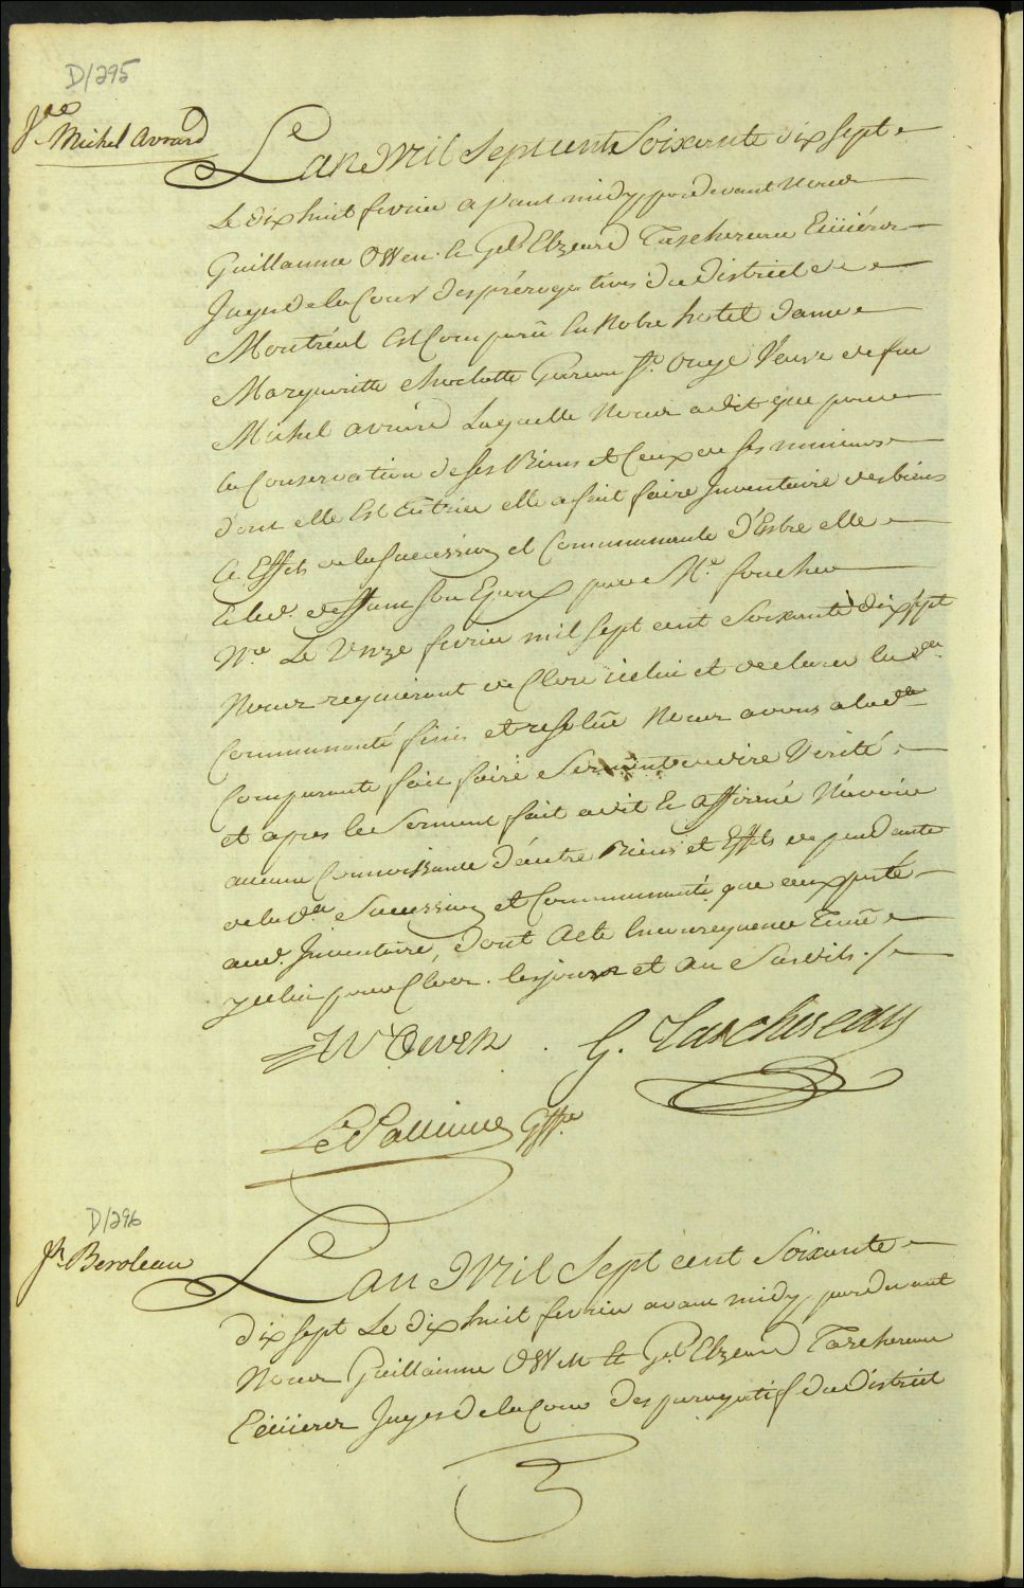 D/295
Jnre
Michel Avrard
Lan Mil Sept cent Soixante dix Sept
Le dix huit fevrier apant midy, pardevant Nous
Guillaume OWen & Gel. Elzeard Taschereau Ecuiérs
Juges de la Cour des prérogatives du District de
Montréal Est Comparü En Notre hotel dame
Margueritte Charlotte St. Onge Veuve de feu
Michel avrard Laquelle Nous a dit que pour
la Conservation de ses Biens et Ceux de ses mineurs
dont elle Est tutrice elle a fait faire Inventaire des biens
& Effets de la sucession et Communauté d'Entre elle
& led. deffunt son Epoux par Me. foucher
Nre. Le Unze fevrier mil sept cent Soixante dix sept
Nous requierant de Clore icelui et declarer la de.
Communauté finie et resolüe Nous avons a lad.
Comparante fait faire Serment de dire Verité
et apres le Serment fait a dit & affirmé N'avoir
aucune Connoissance d'autre Biens et Effets dependante
de la de. Sucession et Communauté que ceux porté
aud. Inventaire, dont Acte En consequence Tenüe
icelui pour Clos. les jour et an Susdits./.
W Owen . G. Taschereau
Le Pallieur Gffr.
D/296
Jh. Beroleau
Lan Mil Sept cent Soixante
dix sept Le dix huit fevrier avant midy, pardevant
Nous Guillaume OWen & Gel. Elzeard Taschereau
Ecüierer Juges de la Cour des perogatif du District